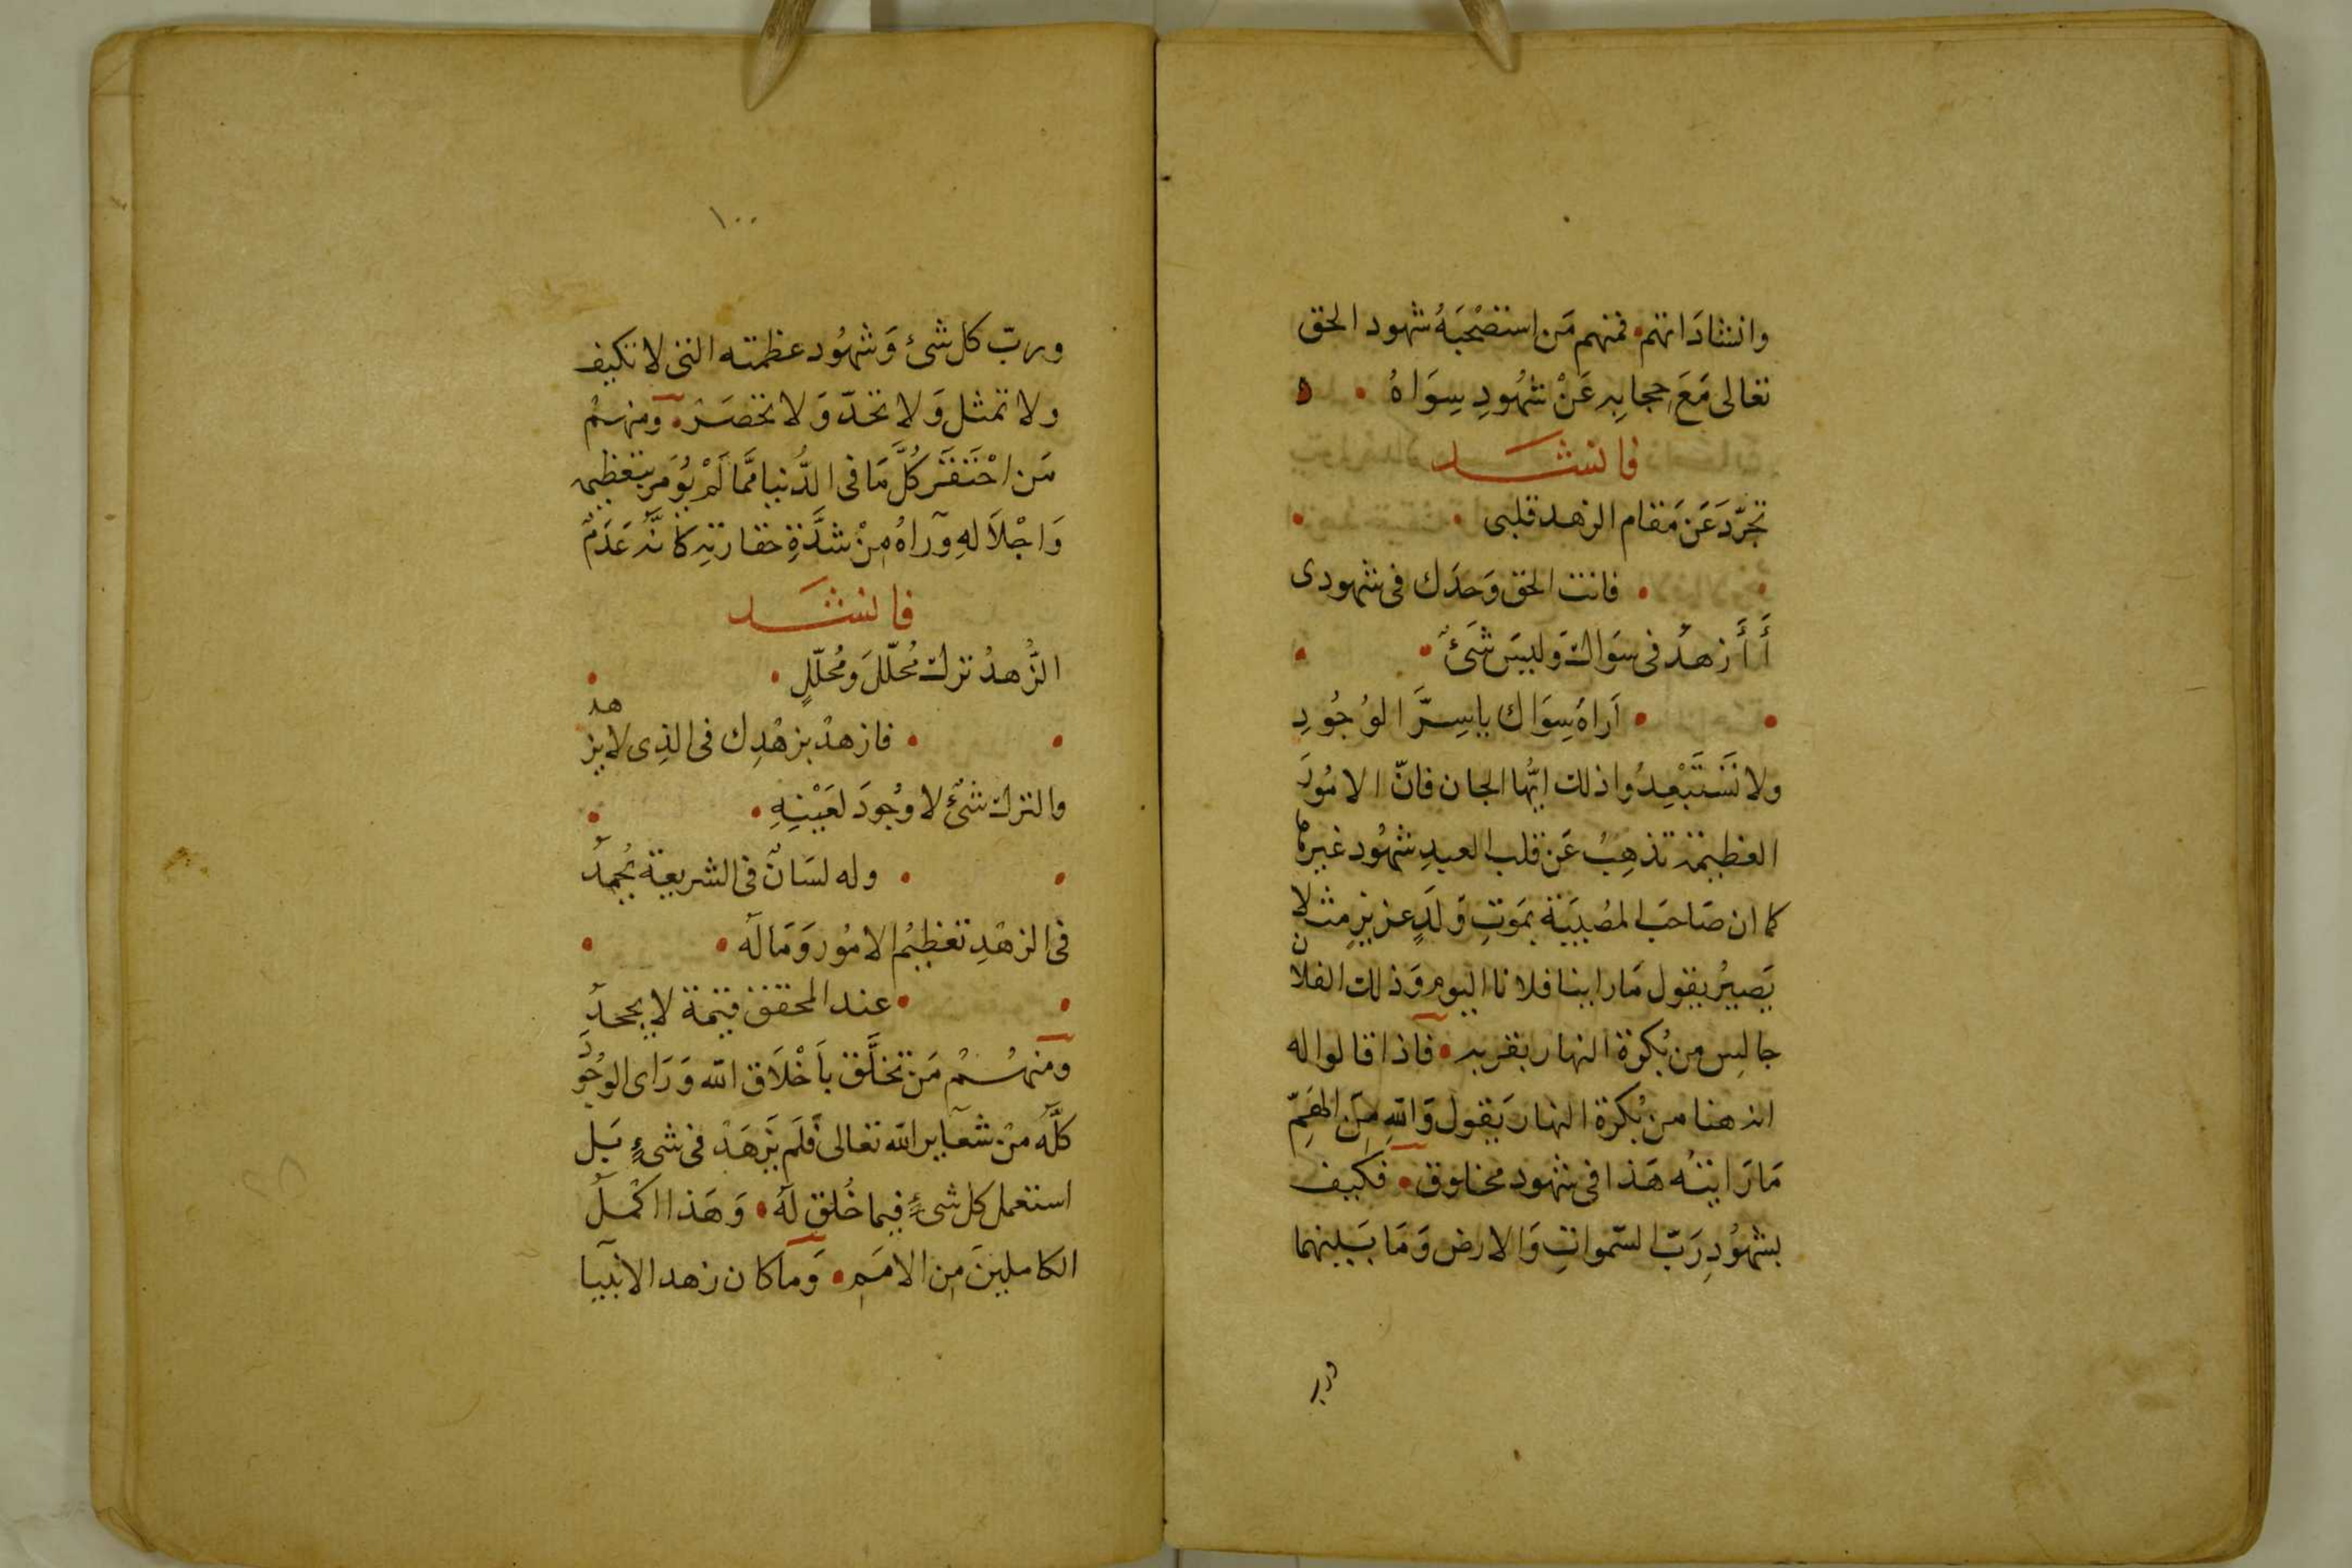 وانشاداتهم • فمنهم مَن اِستَصْحَبَهُ شهود الحق
تعالى مَعَ حجابِهِ عَنْ شهُودِ سِوَاهُ • ه
فانشد
تجَرَّدَ عَن مَقام الزهد قلبى •
• فانت الحق وَحدَك فى شهودى
أَأَزهدُ فى سَواك وَليسَ شَئٌ •
• اَراهُ سِوَاك ياسِرَّ الوُجُودِ
ولا نَسْتَبْعِدُوا ذلك ايُّها الجان فانّ الامُورَ
العظيمة تذهِبُ عَن قلب العبدِ شهُود غيرها
كما ان صَاحبَ المصُيبَة بمَوتِ وَلَدٍ عزيزٍ مثلا
يَصيرُ يقول مَا راينا فلانا اليوم وَذلك الفلان
جالِس من بُكرة النهار بقربه • فاذا قالوا له
انه هنا من بُكرة النهار يَقول وَاللهِ مِنَ الهَمِّ
مَا رَايتُه هَذا فى شهود مخلوق • فكيف
بشهُودِ رَبّ السّمواتِ وَالارض وَمَا بَينهما
ورب
١٠٠
وربّ كل شئ وَشهُود عظمته التى لا تكيف
ولا تمثل وَلا تحدّ وَلا تحصَر • ومنهم
مَن احْتَقَرَ كُلَّ مَا فى الدُّنيا ممَّا لَمْ يُؤمَر بتعظيمه
وَاجْلاَلهِ وَرآهُ مِنْ شدَّةِ حقارتِهِ كانَّه عَدَمٌ
فانشد
الزُّهدُ ترك مُحلّلَ وَمُحلّلٍ •
• فازهدْ بزهْدِك فى الذِى لا يزهد
والترك شئٌ لا وُجودَ لعَيْنِهِ •
• وله لسَانٌ فى الشريعة يُحمدُ
فى الزهْدِ تعظيمُ الامُور وَمَا لَه •
• عند المحقق قيمة لا يجحدُ
ومنهُم مَن تخلَّق بأَخْلاَق الله وَرَاى الوجُودَ
كلَّه مِن شعآير الله تعالى فَلَم يَزهَدْ فى شىءٍ بَل
استعمل كل شئٍ فيما خُلق لَهُ • وَهَذا اكملُ
الكاملينَ مِن الامَمِ • وَما كان زهد الانبيا